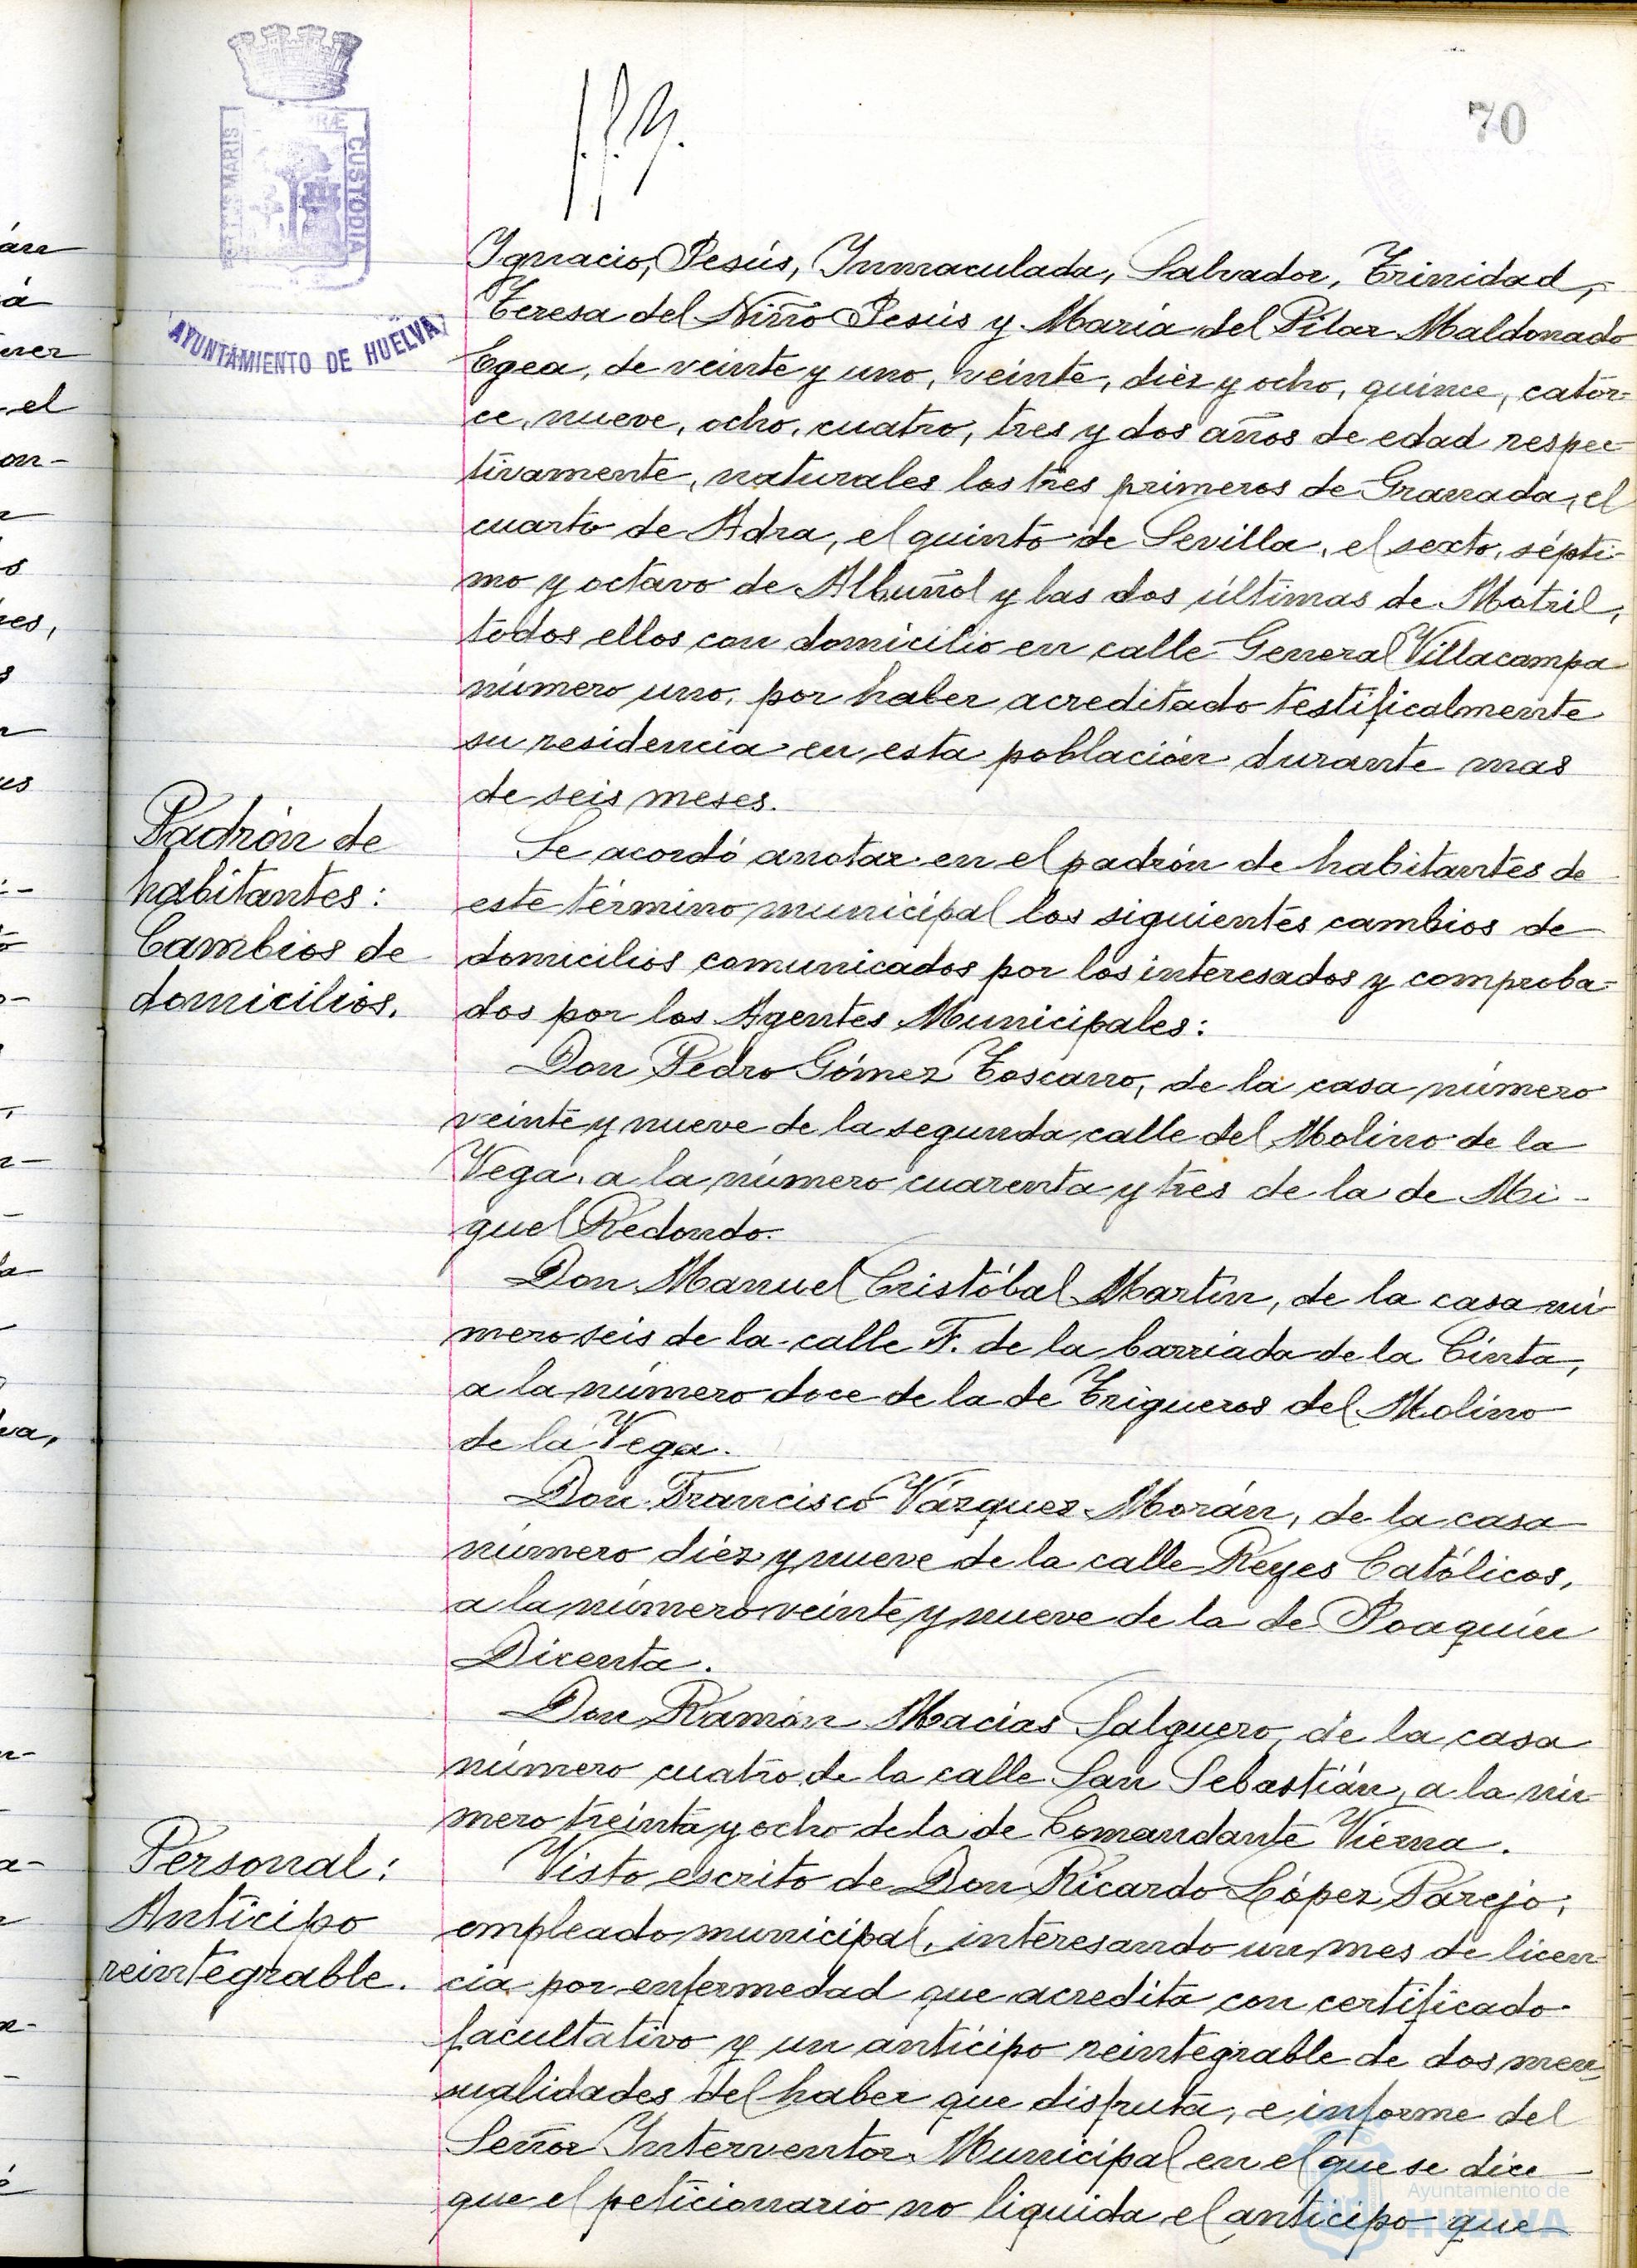 70
PORTUS MARIS
CUSTODIA
AYUNTAMIENTO DE HUELVA
Ignacio, Jesús, Inmaculada, Salvador, Trinidad,
Teresa del Niño Jesús y María del Pilar Maldonado
Egea, de veinte y uno, veinte, diez y ocho, quince, cator-
ce, nueve, ocho, cuatro, tres y dos años de edad respec-
tivamente, naturales los tres primeros de Granada, el
cuarto de Adra, el quinto de Sevilla, el sexto, sépti-
mo y octavo de Albuñol y las dos últimas de Motril,
todos ellos con domicilio en calle General Villacampa
número uno, por haber acreditado testificalmente
su residencia en esta población durante mas
de seis meses.
Padrón de
habitantes:
Cambios de
domicilios.
Se acordó anotar en el padrón de habitantes de
este término municipal los siguientes cambios de
domicilios comunicados por los interesados y comproba-
dos por los Agentes Municipales:
Don Pedro Gómez Toscano, de la casa número
veinte y nueve de la segunda calle del Molino de la
Vega, a la número cuarenta y tres de la de Mi-
guel Redondo.
Don Manuel Cristóbal Martín, de la casa nú-
mero seis de la calle F. de la barriada de la Cinta,
a la número doce de la de Trigueros del Molino
de la Vega.
Don Francisco Vázquez Morán, de la casa
número diez y nueve de la calle Reyes Católicos,
a la número veinte y nueve de la de Joaquín
Dicenta.
Don Ramón Macías Salguero, de la casa
número cuatro de la calle San Sebastián, a la nú-
mero treinta y ocho de la de Comandante Vierna.
Personal:
Anticipo
reintegrable.
Visto escrito de Don Ricardo López Parejo,
empleado municipal, interesando un mes de licen-
cia por enfermedad que acredita con certificado
facultativo y un anticipo reintegrable de dos men-
sualidades del haber que disfruta, e informe del
Señor Interventor Municipal en el que se dice
que el peticionario no liquida el anticipo que
Ayuntamiento de
HUELVA